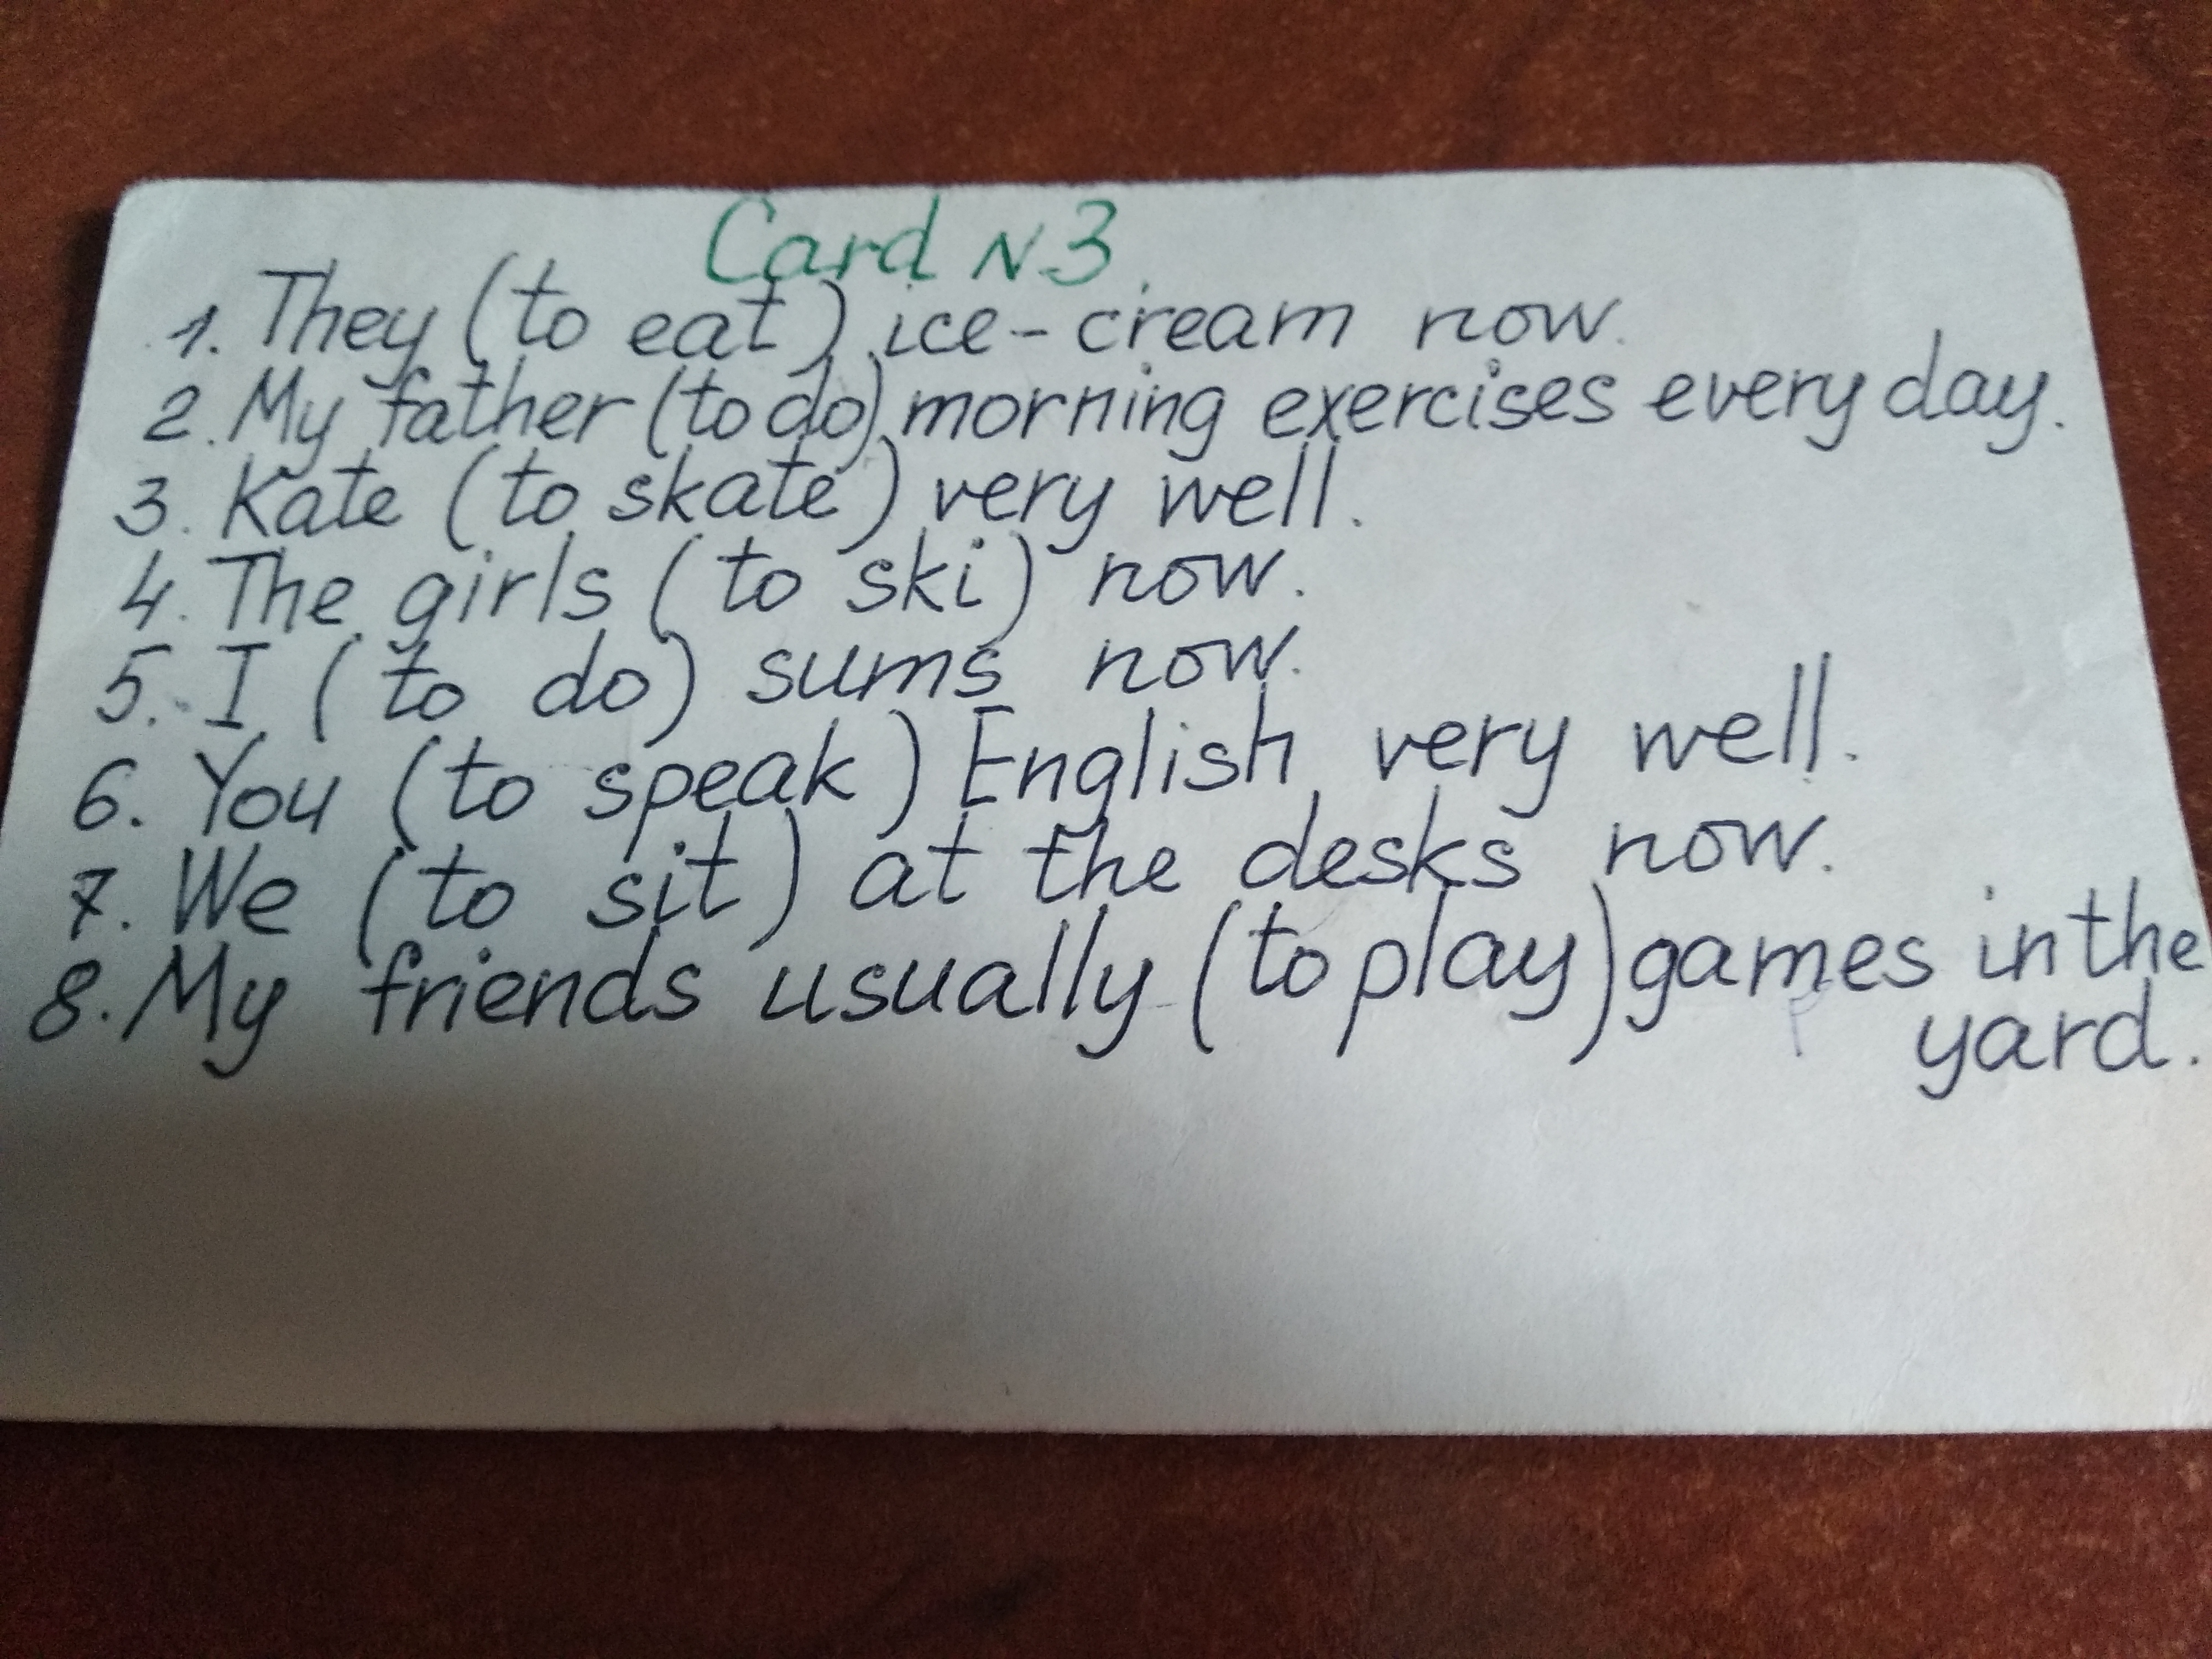 Card N3.
1. They (to eat) ice-cream now.
2. My father (to do) morning exercises every day.
3. Kate (to skate) very well.
4. The girls (to ski) now.
5. I (to do) sums now.
6. You (to speak) English very well.
7. We (to sit) at the desks now.
8. My friends usually (to play) games in the
yard.